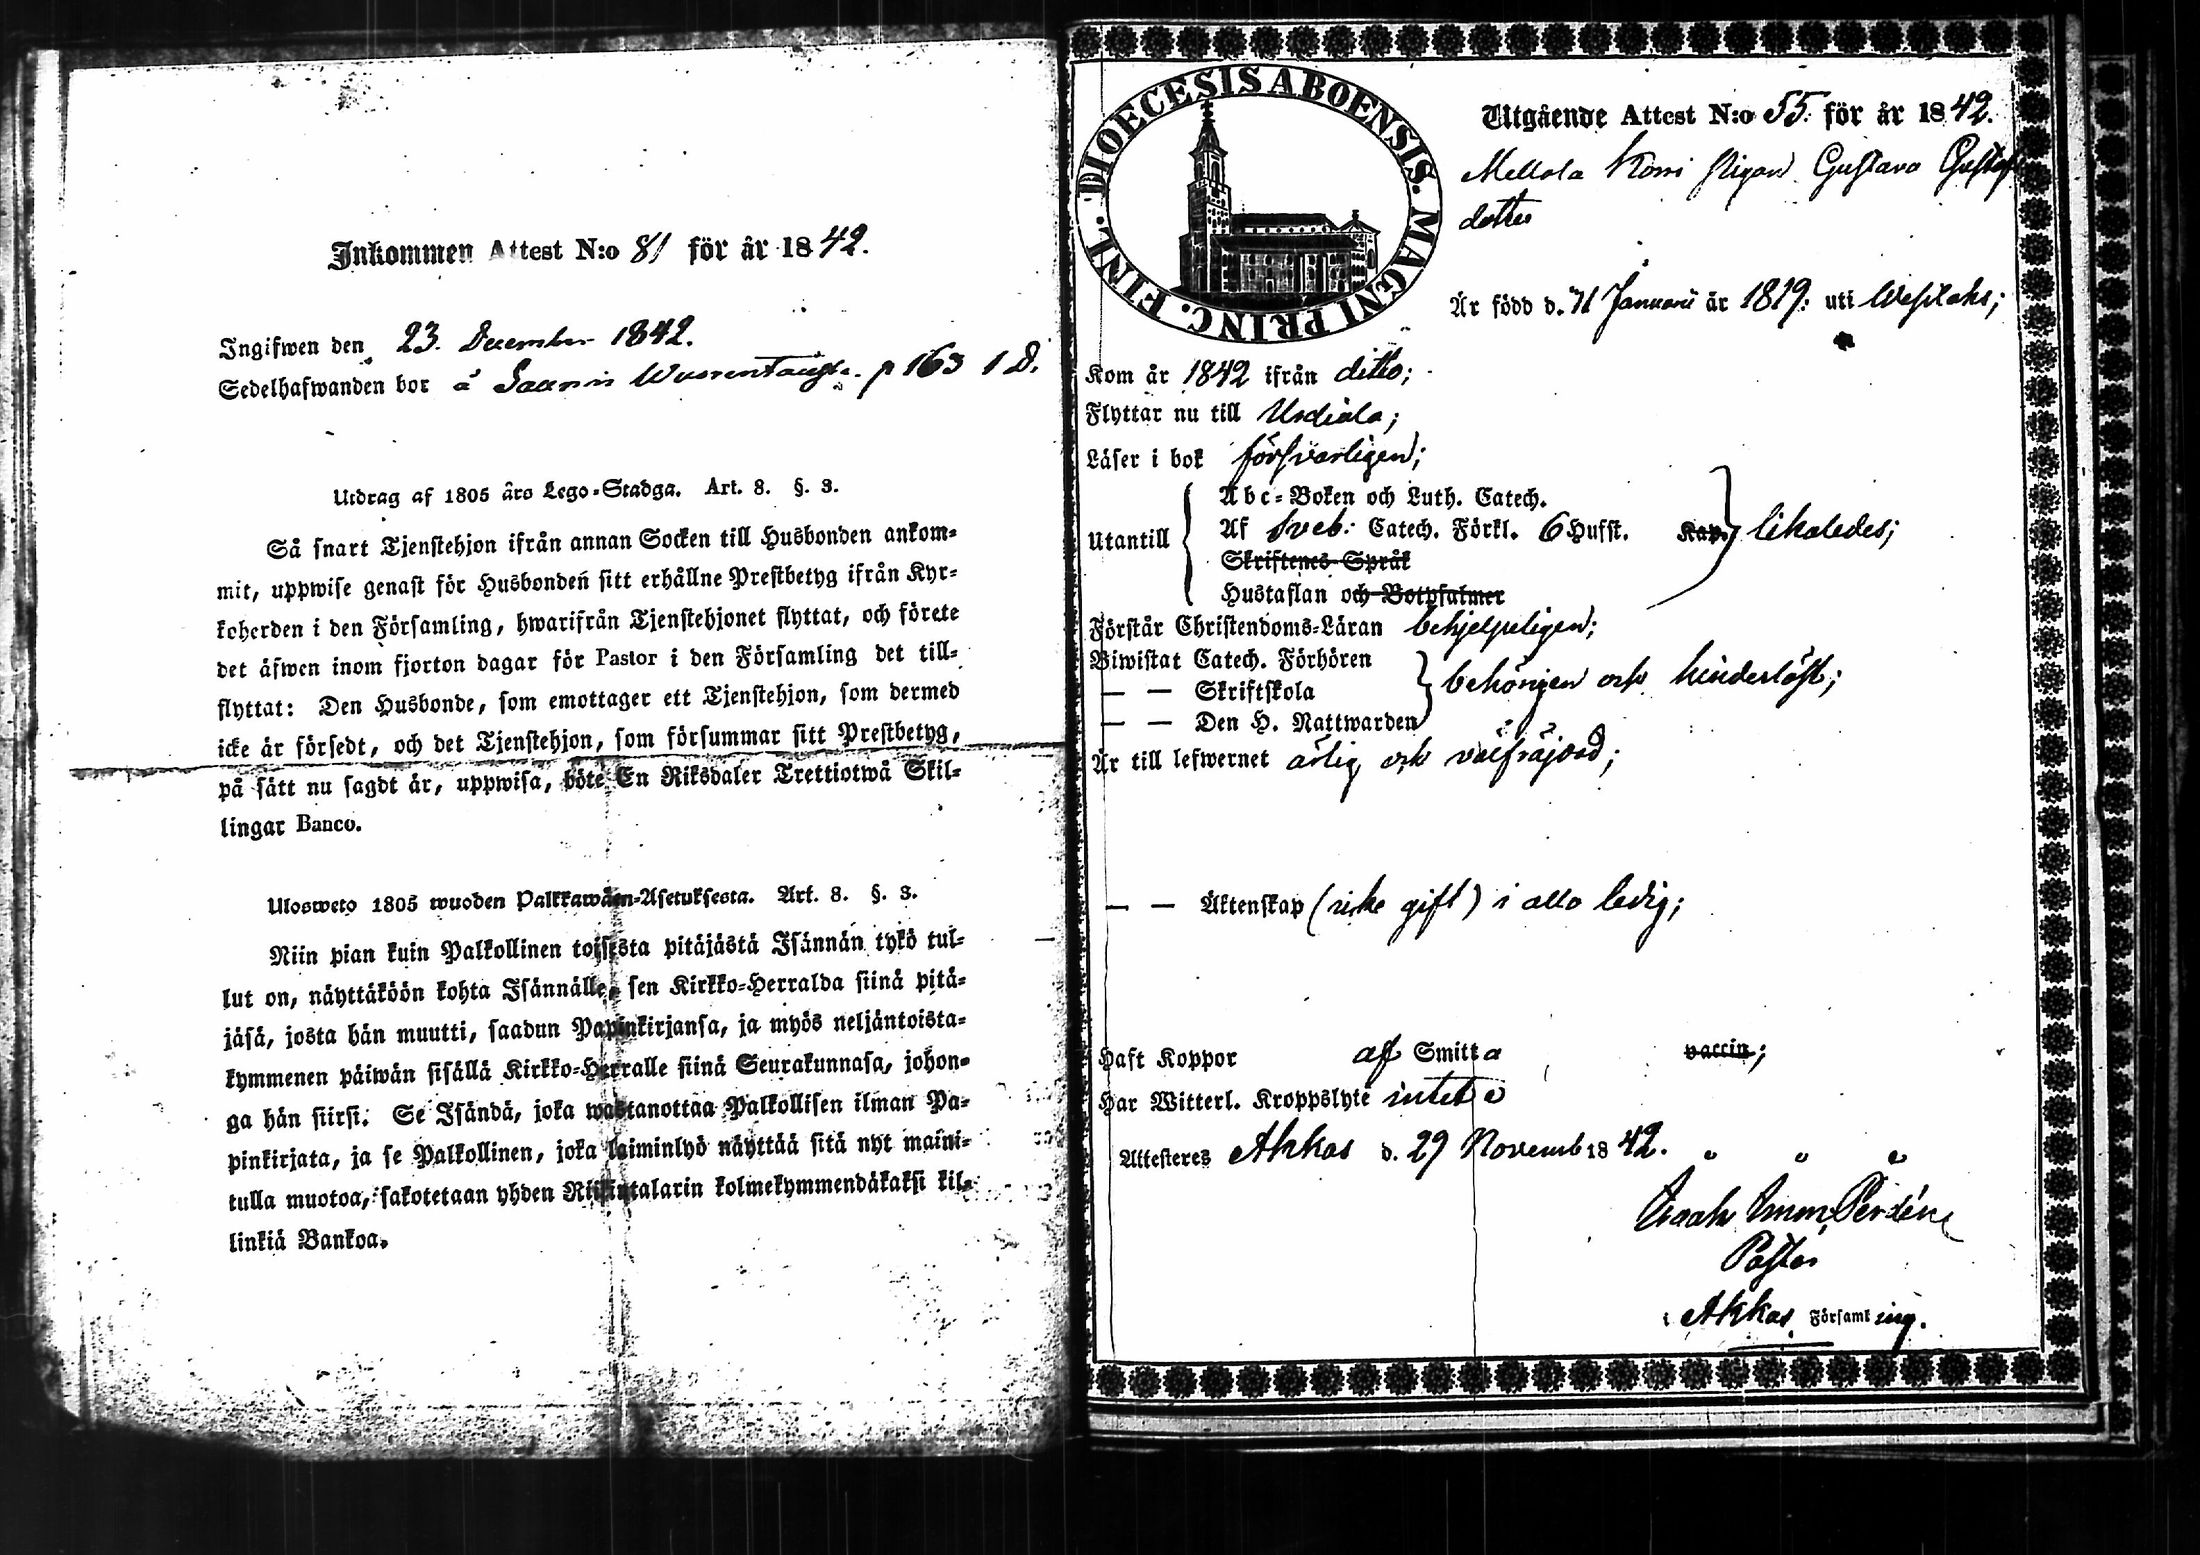 Inkommen Attest N:o 81 för år 1842.
Ingifwen den 23. December 1842.
Sedelhafwanden bor å p 163 1 D.
Utdrag af 1805 års Lego-Stadga. Art. 8. §. 3.
Så snart Tjenstehjon ifrån annan Socken till Husbonden ankom-
mit, uppwise genast för Husbonden sitt erhållne Prestbetyg ifrån Kyr-
koherden i den Församling, hwarifrån Tjenstehjonet flyttat, och förete
det äfwen inom fjorton dagar för Pastor i den Församling det till-
flyttat: Den Husbonde, som emottager ett Tjenstehjon, som dermed
icke är försedt, och det Tjenstehjon, som försummar sitt Prestbetyg,
på sätt nu sagdt är, uppwisa, böte En Riksdaler Trettiotwå Skil-
lingar Banco.
Ulosweto 1805 wuoden Palkkawäen-Asetuksesta. Art. 8. §. 3.
Niin pian kuin Palkollinen toisesta pitäjästä Isännän tykö tul-
lut on, näyttäköön kohta Isännälle, sen Kirkko-Herralda siinä pitä-
jäsä, josta hän muutti, saadun Papinkirjansa, ja myös neljäntoista-
kymmenen päiwän sisällä Kirkko-Herralle siinä Seurakunnasa, johon-
ga hän siirsi. Se Isändä, joka wastanottaa Palkollisen ilman Pa-
pinkirjata, ja se Palkollinen, joka laiminlyö näyttää sitä nyt maini-
tulla muotoa, sakotetaan yhden Riikintalarin kolmekymmendäkaksi kil-
linkiä Bankoa.
DIOECESIS ABOENSIS. MAGNI PRINC. FINL.
Utgående Attest N:o 55. för år 1842.
Mellola Korri Pigan Gustava Gustafs
dotter
Är född d. Januarii år 1819. uti Wesilaks;
Kom år 1842 ifrån ditto;
Flyttar nu till Urdiala;
Läser i bok försvarligen;
Abc-Boken och Luth. Catech.
Utantill Af Sveb. Catech. Förkl. 6 Hufst. Kap. likaledes;
Skriftenes Språk
Hustaflan och Botpsalmer
Förstår Christendoms-Läran behjelpeligen;
Biwistat Catech. Förhören
— — Skriftskola behörigen och hinderlöst;
— — Den H. Nattwarden
Är till lefwernet ärlig och välfräjdad;
— — Äktenskap (icke gift) i allo ledig;
Haft Koppor af Smitta vaccin;
Har Witterl. Kroppslyte intet
Attesteres Akkas d. 29 Novemb 1842.
Isaak Imm. Perdén
Pastor
i Akkas Församling.